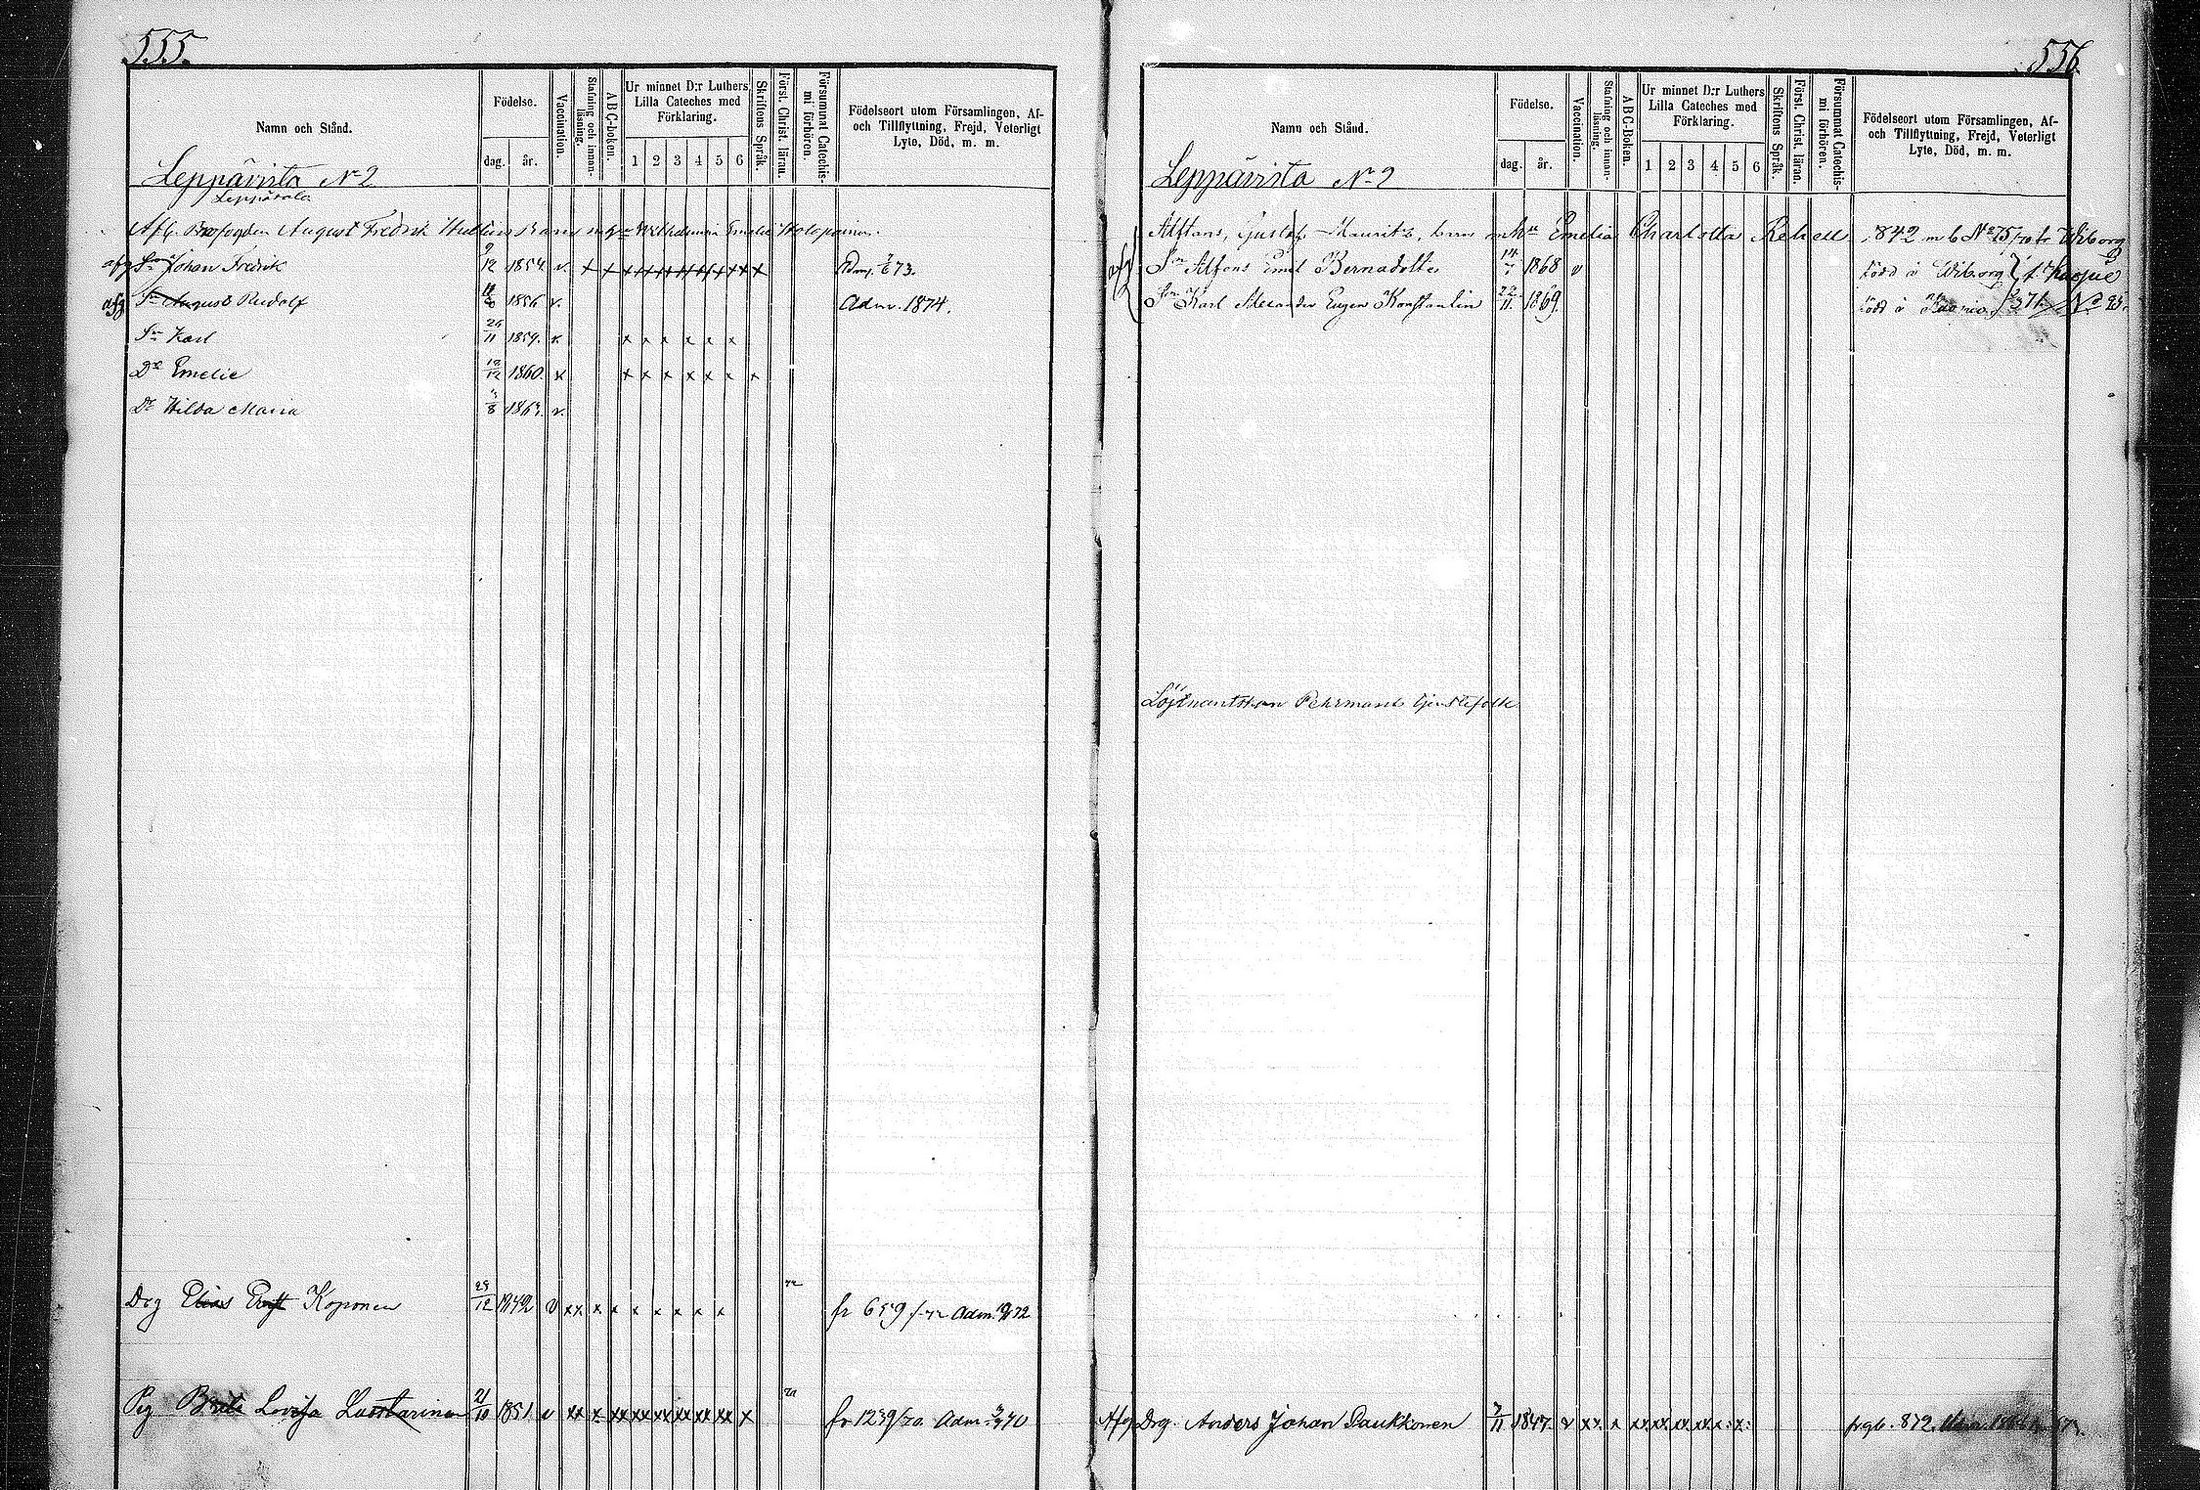 555.
Namn och Stånd.
Födelse.
dag. år.
Vaccination.
Stafning och innanläsning.
ABC-boken.
Ur minnet D:r Luthers Lilla Cateches med Förklaring.
1 2 3 4 5 6
Skriftens Språk.
Först. Christ. läran.
Försummat Catechismi förhören.
Födelseort utom Församlingen, Af- och Tillflyttning, Frejd, Veterligt Lyte, Död, m. m.
Leppävirta No 2
Leppävala
August Fredrik barn m hn Wilhelmina Emelie Holopainen.
afg Sn Johan Fredrik 9/12 1854. v. x x x x x x x x x 73.
afg Sn August Rudolf 1856 v. Adm. 1874.
Sn Karl 1859. v. x x x x x x
Dr Emelie 1860. v x x x x x x x
Dr Hilda Maria 1863. v.
Drg Elias Koponen 29/12 1842 v xx x x x x x x fr 659 Adm. 72
Pig Brita Lovisa Lasstarinen 21/10 1851 v xx x xx xx xx xx xx xx x fr 1239/70 Adm. 70
556.
Namn och Stånd.
Födelse.
dag. år.
Vaccination.
Stafning och innanläsning.
ABC-Boken.
Ur minnet D:r Luthers Lilla Cateches med Förklaring.
1 2 3 4 5 6
Skriftens Språk.
Först. Christ. läran.
Försummat Catechismi förhören.
Födelseort utom Församlingen, Af- och Tillflyttning, Frejd, Veterligt Lyte, Död, m. m.
Leppävirta No 2
Alftans, Gustaf Mauritz, barn m hn Emelia Charlotta Rehell 1842 m b No 75/70 fr Wiborg
afg Sn Alfons Emil Bernadotte 1868 v född i Wiborg
Sn Karl Alexander Eugen Konstantin 22/11 1869. född i Kuopio
Löjtnantskan Pehrmans tjenstefolk
Afg Drg Anders Johan Laukkonen 7/11 1847. v xx. x xx. xx. xx. xx. x. x. 872.